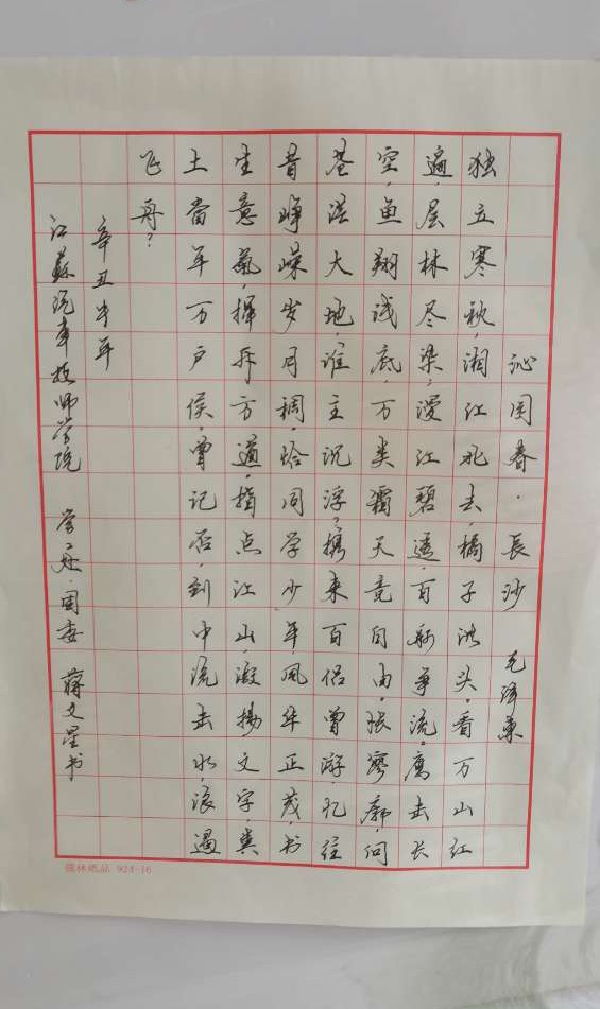 沁园春·長沙 毛泽東
独立寒秋,湘江北去,橘子洲头,看万山红
遍,层林尽染,漫江碧透,百舸争流。鹰击长
空,鱼翔浅底,万类霜天竞自由。怅寥廓,问
苍茫大地,谁主沉浮?携来百侣曾游,忆往
昔峥嵘岁月稠。恰同学少年,风华正茂,书
生意氣,挥斥方遒。指点江山,激扬文字,粪
土當年万户侯。曾记否,到中流击水,浪遏
飞舟?
辛丑牛年
江蘇汽車技师学院 学工处·团委 蒋文星书